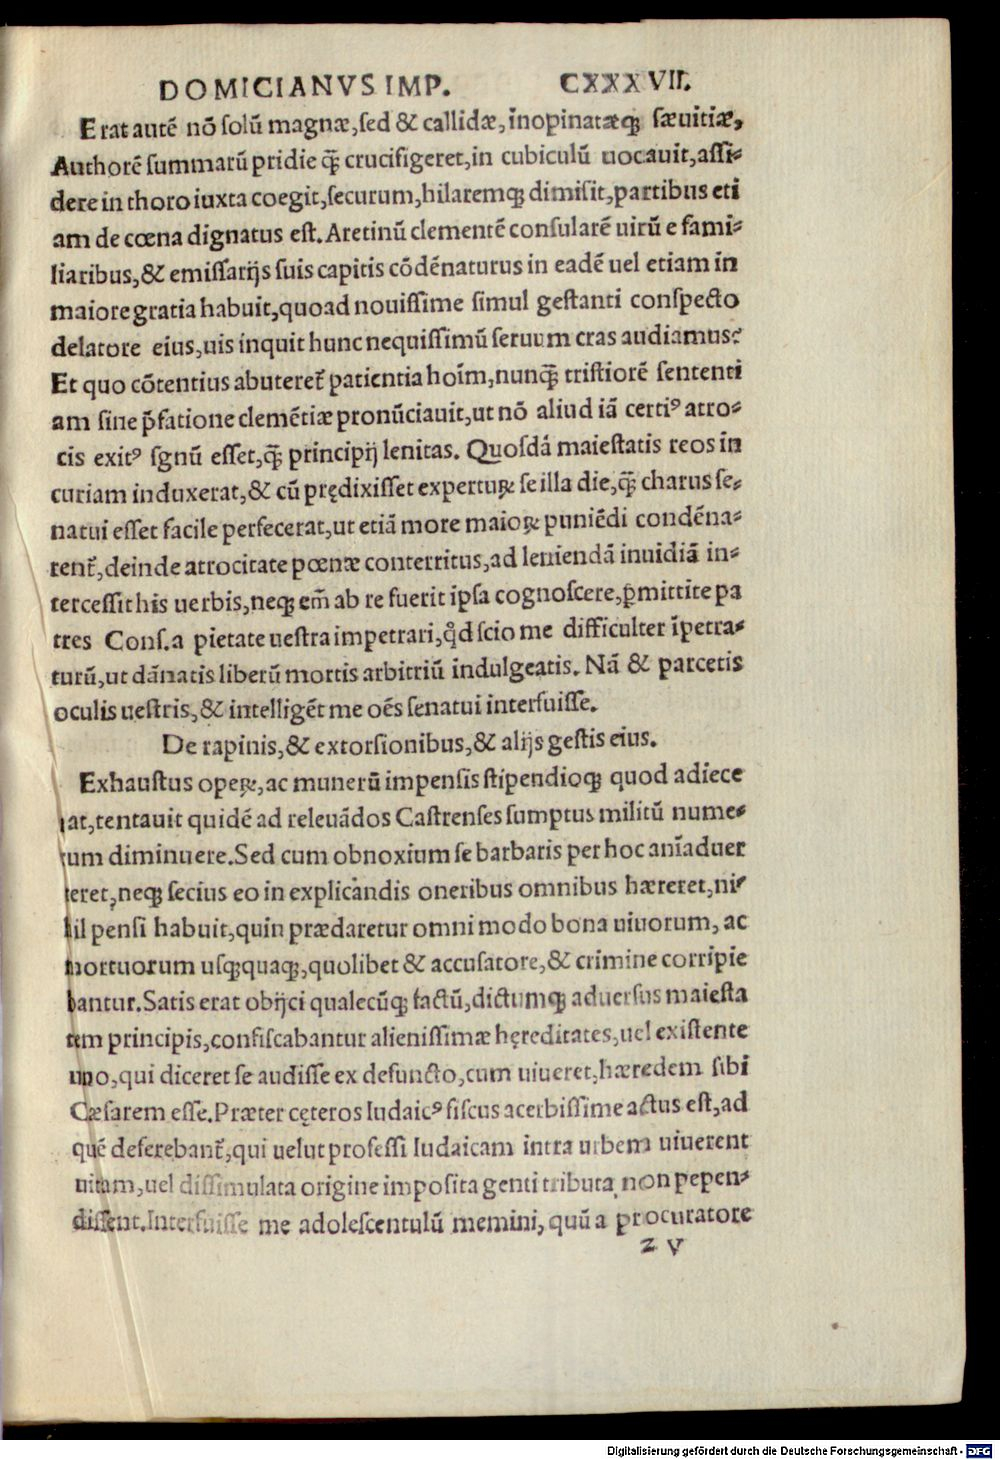 DOMICIANVS IMP. CXXXVII.
Erat autē nō solū magnæ,sed & callidæ,īnopinatæq; sæuitiæ,
Authorē summarū pridie q̄ crucifigeret,in cubiculū uocauit,assi-
dere in thoro iuxta coegit,securum,hilaremq; dimisit,partibus eti
am de cœna dignatus est.Aretinū clementē consularē uirū e fami-
liaribus,& emissarijs suis capitis cōdēnaturus in eadē uel etiam in
maiore gratia habuit,quoad nouissime simul gestanti conspecto
delatore eius,uis inquit hunc nequissimū seruum cras audiamus?
Et quo cōtentius abuteret᷑ patientia hoīm,nunq̄ tristiorē sententi
am sine p̄fatione clemētiæ pronūciauit,ut nō aliud iā certiꝰ atro-
cis exitꝰ sgnū esset,q̄ principij lenitas. Quosdā maiestatis reos in
curiam induxerat,& cū prędixisset expertuꝝ se illa die,q̄ charus se-
natui esset facile perfecerat,ut etiā more maioꝝ puniēdi condēna-
rent᷑,deinde atrocitate pœnæ conterritus,ad leniendā inuidiā in-
tercessit his uerbis,neq; em̄ ab re fuerit ipsa cognoscere,p̱mittite pa
tres Cons.a pietate uestra impetrari,qd̓ scio me difficulter īpetra-
turū,ut dānatis liberū mortis arbitriū indulgeatis. Nā & parcetis
oculis uestris,& intelligēt me oēs senatui interfuisse.
De rapinis,& extorsionibus,& alijs gestis eius.
Exhaustus opeꝝ,ac munerū impensis stipendioq; quod adiece
rat,tentauit quidē ad releuādos Castrenses sumptus militū nume-
rum diminuere.Sed cum obnoxium se barbaris per hoc anīaduer
teret,neq; secius eo in explicandis oneribus omnibus hæreret,ni-
hil pensi habuit,quin prædaretur omni modo bona uiuorum, ac
mortuorum usq;quaq;,quolibet & accusatore,& crimine corripie
bantur.Satis erat obijci qualecūq; factū,dictumq; aduersus maiesta
tem principis,confiscabantur alienissimæ hęreditates,uel existente
uno,qui diceret se audisse ex defuncto,cum uiueret,hæredem sibi
Cæsarem esse.Præter cęteros Iudaicꝰ fiscus acerbissime actus est,ad
quē deferebant᷑,qui uelut professi Iudaicam intra urbem uiuerent
uitam,uel dissimulata origine imposita genti tributa non pepen-
dissent.Interfuisse me adolescentulū memini,quū a procuratore
z V
Digitalisierung gefördert durch die Deutsche Forschungsgemeinschaft - DFG